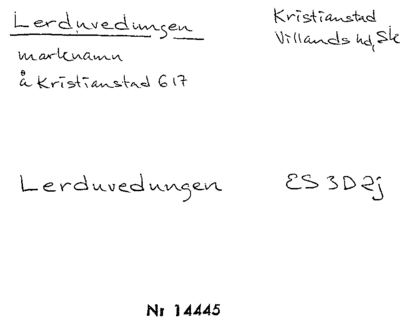 Lerduvedungen
Kristianstad
Villands hd, Sk
marknamn
å Kristianstad 617
Lerduvedungen
ES 3D2j
Nr 14445